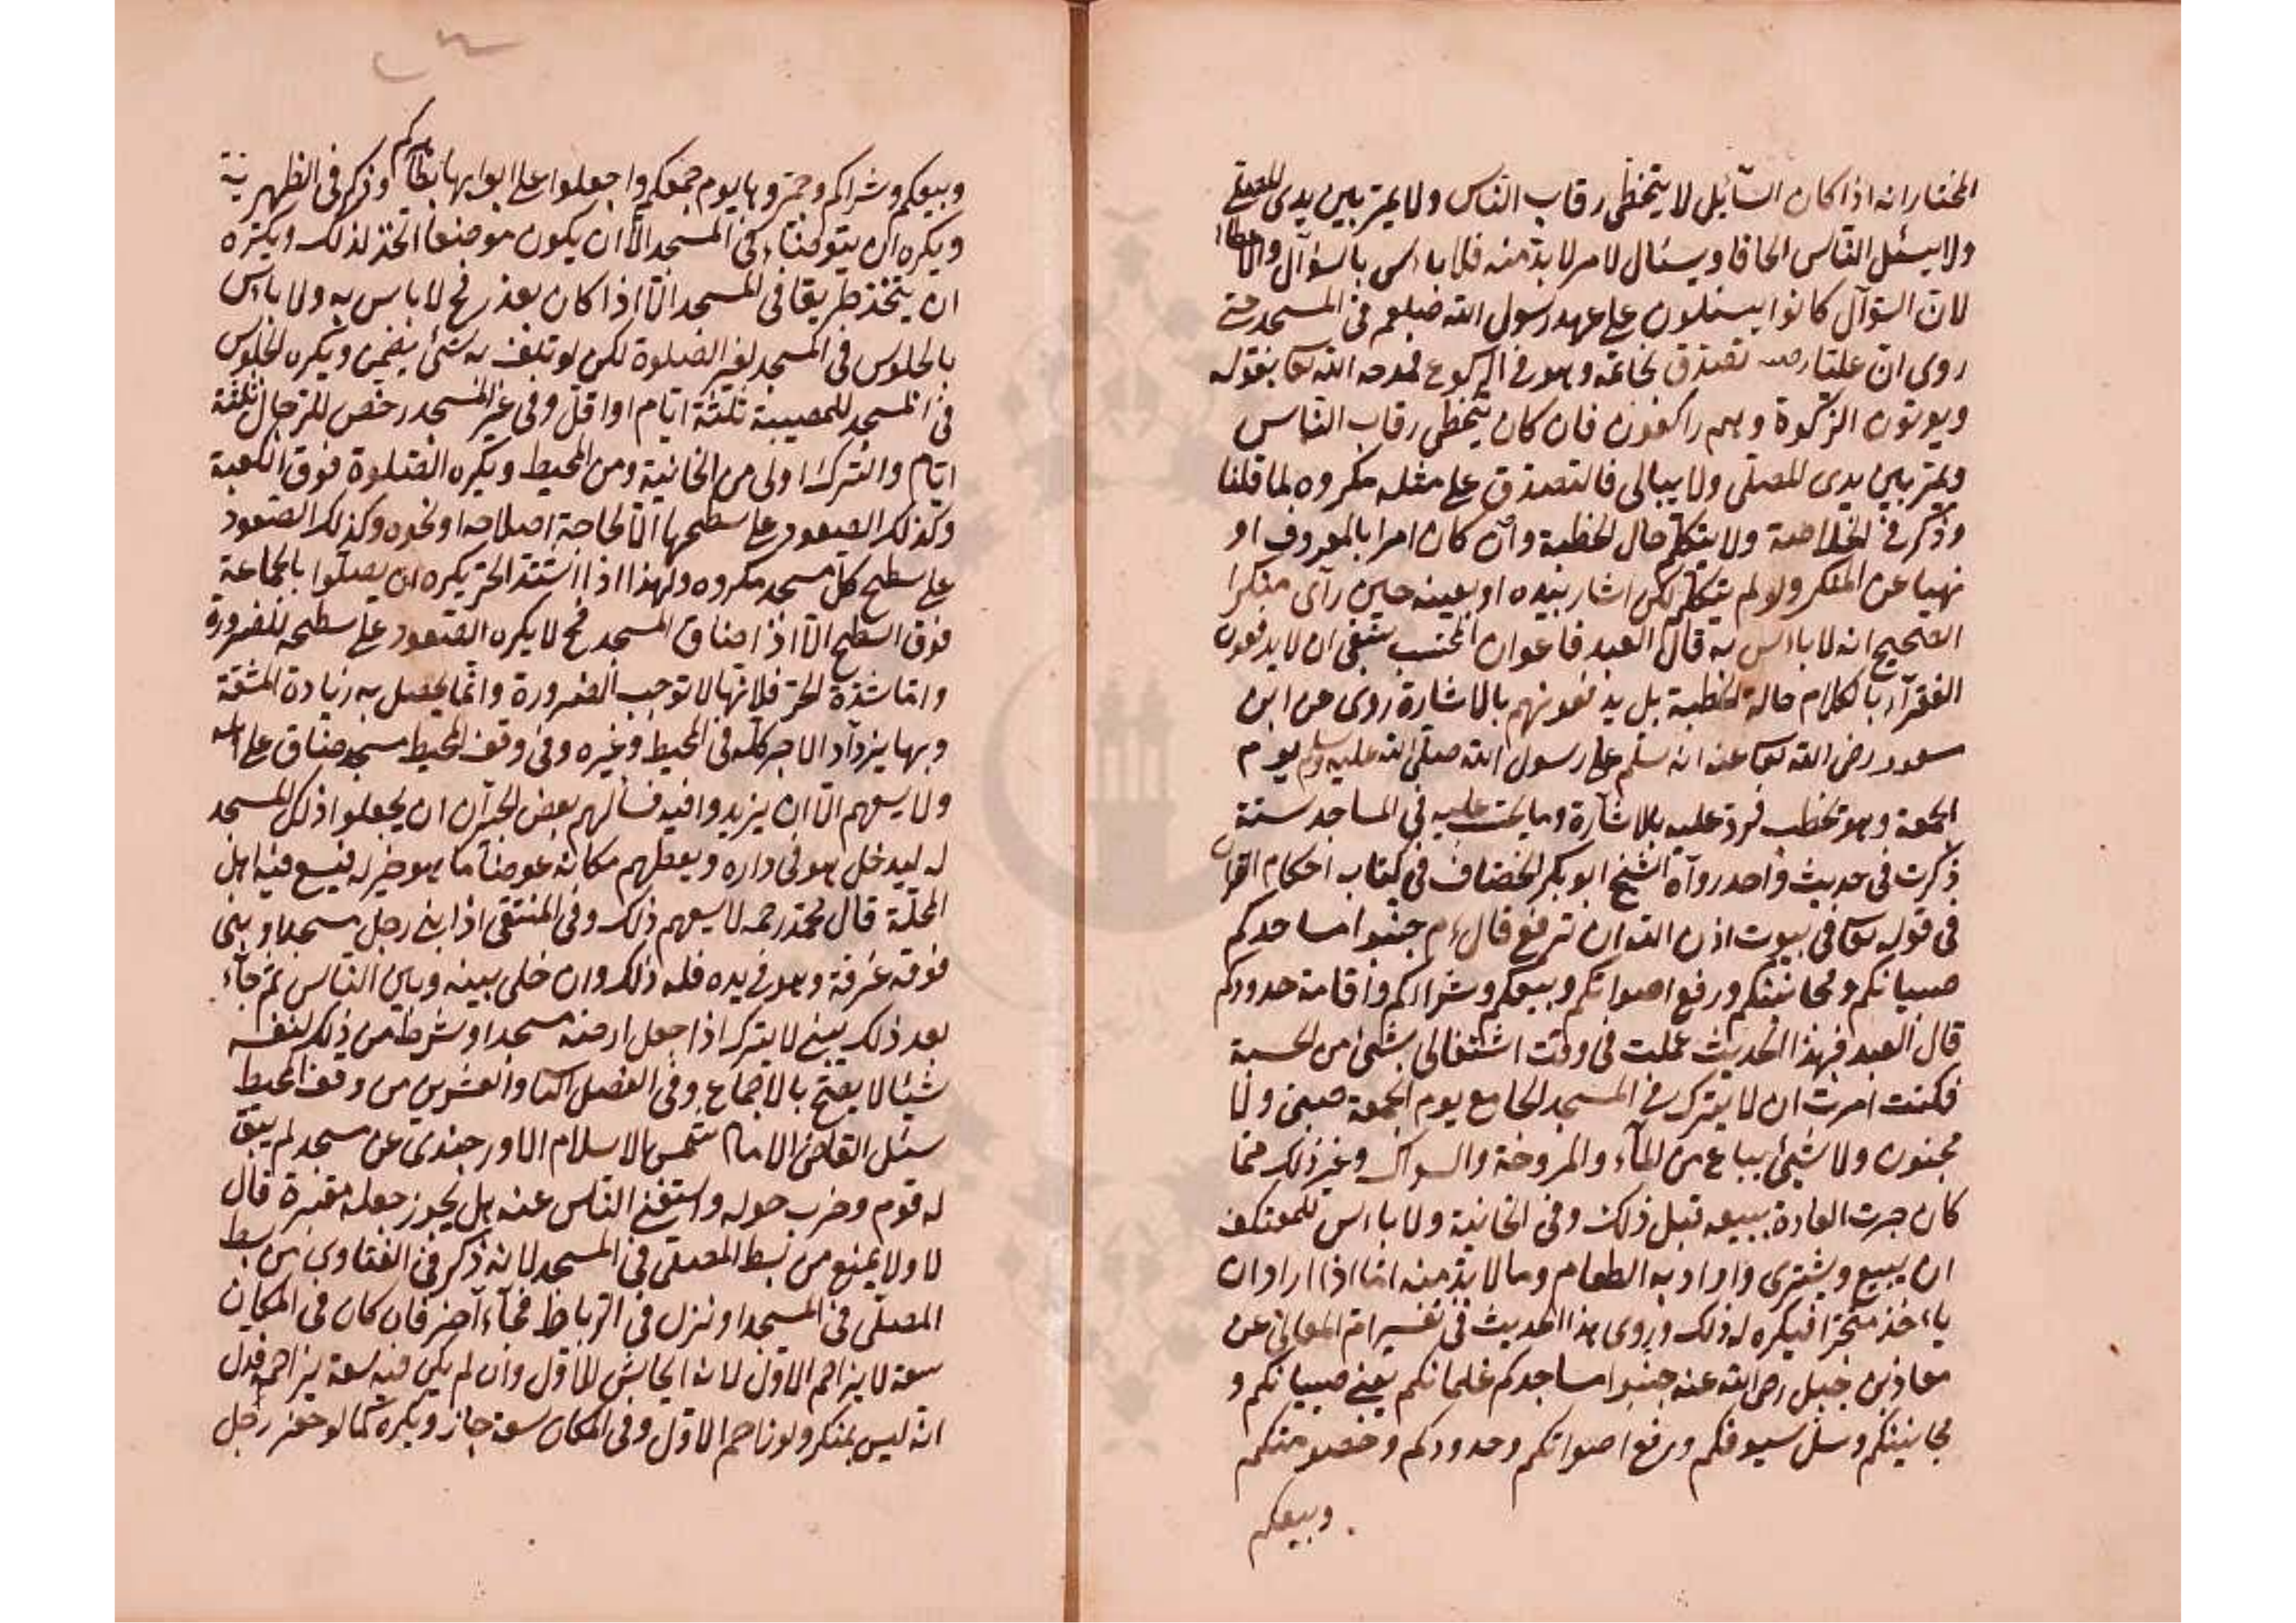 المختار انه اذا كان السّآئل لا يتخطى رقاب النّاس ولا يمرّ بين يدى المصلّى
ولا يسئل النّاس الحافا ويسئال لامر لا بدّ منه فلا باءس بالسّؤآل والاعطاء
لانّ السّؤآل كانوا يسئلون على عهد رسول الله صلعم فى المسجد حتى
روى انّ عليّا رضه تصدّق بخاتمه وهو فى الركوع فمدحه الله تعا بقوله
ويوتون الزّكوة وهم راكعون فان كان يتخطى رقاب النّاس
ويمرّ بين يدى المصلّى ولا يبالى فالتصدّق على مثله مكروه لما قلنا
وذكر فى الخلاصة ولا يتكلّم حال الخطبة وان كان امرا بالمعروف او
نهيا عن المنكر ولو لم يتكلّم لكن اشار بيده او بعينه حين رآى منكرا
الصّحيح انه لا باءس به قال العبد فاعوان المحتسب ينبغى ان لا يدفعون
الفقرآء بالكلام حالة الخطبة بل يدفعونهم بالاشارة روى عن ابن
مسعود رضى الله تعا عنه انه سلّم على رسول الله صلّى الله عليه وسلم يوم
الجمعة وهو يخطب فردّ عليه بالاشارة وما يحتسب عليه فى المساجد ستة
ذكرت فى حديث واحد روآه الشّيخ ابو بكر الخصّاف فى كتاب احكام القرآن
فى قوله تعا فى بيوت اذن الله ان ترفع قال ءم جنّبوا مساجدكم
صبيانكم ومجانينكم ورفع اصواتكم وبيعكم وشرائكم واقامة حدودكم
قال العبد فبهذا الحديث عملت فى وقت اشتغالى بشئ من الحسبة
فكنت امرت ان لا يترك فى المسجد الجامع يوم الجمعة صبىّ ولا
مجنون ولا شئ يباع من المآء والمروحة والسواك وغير ذلك ممّا
كان جرت العادة ببيعه قبل ذلك وفى الخانية ولا باءس للمعتكف
ان يبيع ويشترى وارادبه الطعام وما لا بدّ منه امّا اذا اراد ان
ياءخذ متجرا فيكره له ذلك وروى هذا الحديث فى تفسير امّ المعانى عن
معاذ بن جبل رضى الله عنه جنّبوا مساجدكم غلمانكم يعنى صبيانكم و
مجانينكم وسلّ سيوفكم ورفع اصواتكم وحدودكم وخصومتكم
وبيعكم
وبيعكم وشراكم وجمّروها يوم جمعكم واجعلوا على ابوابها مطاهركم وذكر فى الظهيرية
ويكره ان يتوضّاء فى المسجد الّا ان يكون موضعا اتّخذ لذلك ويكره
ان يتّخذ طريقا فى المسجد الّا اذا كان بعذر فح لا باس به ولا باءس
بالجلوس فى المسجد لغير الصّلوة لكن لو تلف به شئ يضمن ويكره الجلوس
فى المسجد للمصيبة ثلثة ايّام او اقلّ وفى غير المسجد رخّص للرّجال ثلثة
ايّام والترك اولى من الخانية ومن المحيط ويكره الصّلوة فوق الكعبة
وكذلك الصعود على سطحها الّا لحاجة اصلاحه او نحوه وكذلك الصّعود
على سطح كلّ مسجد مكروه ولهذا اذا اشتدّ الحرّ يكره ان يصلّوا بالجماعة
فوق السّطح الّا اذا ضاق المسجد فح لا يكره الصّعود على سطحه للضرورة
وامّا شدّة الحرّ فلانّها لا توجب الضّرورة وانّما يحصل به زيادة المشقّة
وبها يزدآد الاجر كلّه فى المحيط وغيره وفى وقف المحيط مسجد ضاق على اهله
ولا يسعهم الّا ان يزيدوا فيه فسألهم بعض الجيرآن ان يجعلوا ذلك المسجد
له ليدخل هو فى داره ويعطهم مكانه عوضا ما هو خير له فيسع فيه اهل
المحلّة قال محمّد رحمه لا يسعهم ذلك وفى المنتقى اذا بنى رجل مسجدا وبنى
فوقه غرفة وهو فى يده فله ذلك وان خلّى بينه وبين النّاس ثمّ جآء
بعد ذلك يبنى لا يترك اذا جعل ارضه مسجدا وشرط من ذلك لنفسه
شيئا لا يصحّ بالاجماع وفى الفصل والعشرين من وقف المحيط
سئل القاضى الامام شمس الاسلام الاورجندى عن مسجد لم يبق
له قوم وخرب حوله واستغنى النّاس عنه هل يجوز جعله مقبرة قال
لا ولا يمنع من بسط المصلّى فى المسجد لانه ذكر فى الفتاوى من بسط
المصلّى فى المسجد او نزل فى الرّباط فجآء آخر فان كان فى المكان
سعة لا يزاحم الاوّل لانه ايحاش للاوّل وان لم يكن فيه سعة يزاحمه فدلّ
انه ليس بمنكر ولو زاحم الاوّل وفى المكان سعة جاز ويكره كما لو حفر رجل